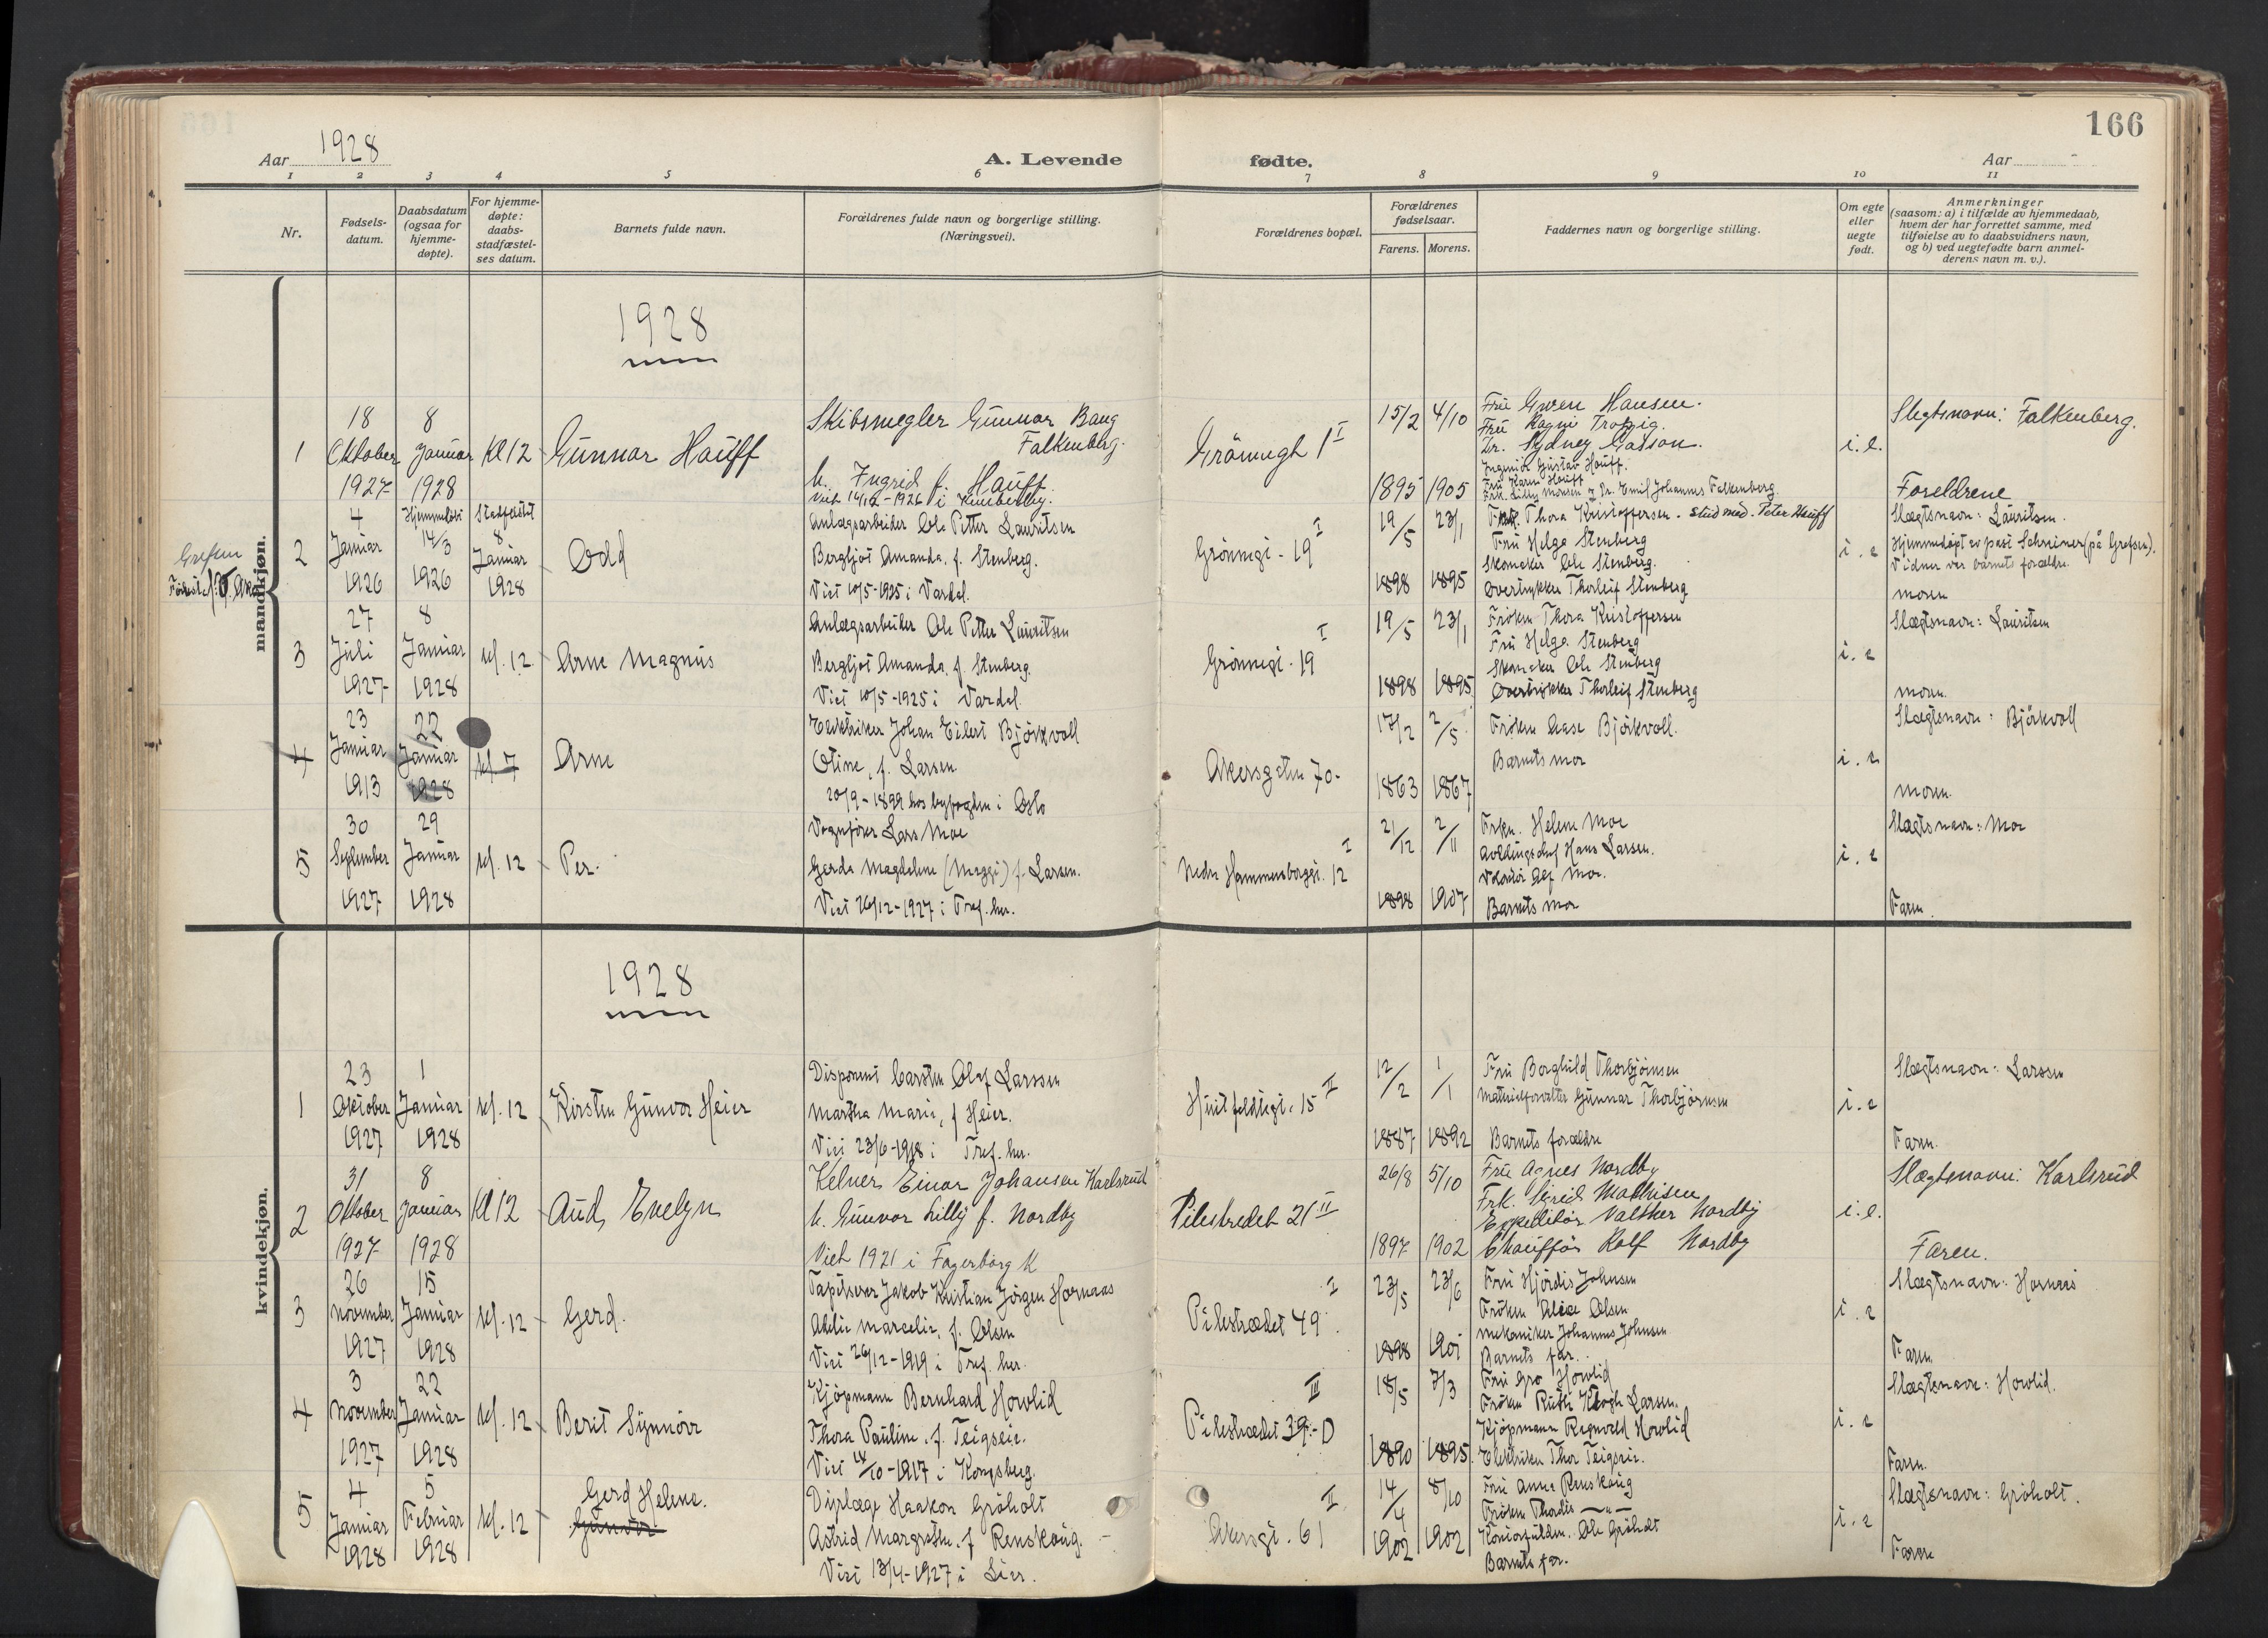 166
Aar 1928
A. Levende fødte.
Aar
1 2 3 4 5 6 7 8 9 10 11
Nr.
Fødsels-
datum.
Daabsdatum
(ogsaa for
hjemme-
døpte).
For hjemme-
døpte:
daabs-
stadfæstel-
ses datum.
Barnets fulde navn.
Forældrenes fulde navn og borgerlige stilling.
(Næringsvei).
Forældrenes bopæl.
Forældrenes
fødselsaar.
Farens. Morens.
Faddernes navn og borgerlige stilling.
Om egte
eller
uegte
født.
Anmerkninger
(saasom: a) i tilfælde av hjemmedaab,
hvem der har forrettet samme, med
tilføielse av to daabsvidners navn,
og b) ved uegtefødte barn anmel-
derens navn m. v.).
mandkjøn.
1928
1
18
Oktober
1927
8
Januar
1928
Kl 12
Gunnar Hauff
Skibsmegler Gunnar Bang
Falkenberg.
h. Ingrid f. Hauff
15/2
1895
4/10
1905
Fru Gwen Hansen.
Fru Ragni Trotzig.
Dr. Sydney Gasson.
Ingeniør Gustav Hauff.
Fru Karen Hauff
Emil Johannes Falkenberg.
stud med. Peter Hauff
i. e.
Slegtsnavn: Falkenberg.
Foreldrene
Grefsen
2
4
Januar
1926
Hjemmedøbt
14/3
1926
Stadfestet
8
Januar
1928
Odd
Anlægsarbeider Ole Petter Lauritsen
Bergljot Amanda, f. Stenberg.
Viet 10/5-1925 i Vardal.
Grønnegt. 19 I
19/5
1898
23/1
1895
Frk. Thora Kristoffersen
Fru Helga Stenberg
Skomaker Ole Stenberg.
Overtrykker Thorleif Stenberg
i. e
Slægtsnavn: Lauritsen.
Hjemmedøpt av pest Schreiner (på Grefsen).
Vidner var barnets forældre.
moren
3
27
Juli
1927
8
Januar
1928
kl. 12
Arne Magnus
Anlægsarbeider Ole Petter Lauritsen
Bergljot Amanda, f. Stenberg.
Viet 10/5-1925 i Vardal.
Grønnegt. 19 I
19/5
1898
23/1
1895
Frøken Thora Kristoffersen
Fru Helga Stenberg
Skomaker Ole Stenberg
Overtrykker Thorleif Stenberg
i. e
Slægtsnavn: Lauritsen
moren.
4
23
Januar
1913
22
Januar
1928
kl. 7
Arne
Elektriker Johan Eilert Bjørkvoll
Otine, f. Larsen
20/9-1899 hos byfogden i Oslo
Akersgaten 70.
17/2
1863
2/5
1867
Frøken Aase Bjørkvoll.
Barnets mor
i. e
Slægtsnavn: Bjørkvoll
moren.
5
30
September
1927
29
Januar
1928
kl. 12
Per.
Vognfører Lars Moe
Gerda Magdalene (Maggi) f. Larsen.
Viet 26/12-1927 i Tref. her.
Nedre Hammersborggt. 12 I
21/12
1898
2/11
1907
Frkn. Helene Moe
Avdelingschef Hans Larsen.
Alf Moe.
Barnets mor
i. e
Slægtsnavn: Moe
Faren.
kvindekjøn.
1928
1
23
Oktober
1927
1
Januar
1928
kl. 12
Kirsten Gunvor Heier
Disponent Carsten Olaf Larssen
Martha Marie, f Heier.
Viet 23/6-1918 i Tref. her.
Huitfeldtsgt. 15 II
12/2
1887
1/1
1892
Fru Borghild Thorbjørnsen
Materialforvalter Gunnar Thorbjørnsen
Barnets forældre
i. e
Slægtsnavn: Larssen
Faren.
2
31
Oktober
1927
8
Januar
1928
Kl 12
Aud Evelyn
Kelner Einar Johansen Karlsrud
h. Gunvor Lilly f. Nordby
Viet 1921 i Fagerborg K
Pilestredet 21 II
26/8
1897
5/10
1902
Fru Agnes Nordby
Frk. Sigrid Mathisen
Expeditør Valther Nordby
Chauffør Rolf Nordby
i. e.
Slægtsnavn: Karlsrud
Faren.
3
26
November
1927
15
Januar
1928
kl. 12
Gerd.
Tapetserer Jakob Kristian Jørgen Hornaas
Marcelie, f. Olsen
Viet 26/12-1919 i Tref. her.
Pilestrædet 49 I
23/5
1898
23/6
1901
Fru Hjørdis Johnsen
Frøken Alice Olsen
Mekaniker Johannes Johnsen
Barnets far.
i. e
Slægtsnavn: Hornaas
Faren
4
3
November
1927
22
Januar
1928
kl. 12
Berit Synnøve
Kjøpmann Bernhard Hovlid
Thora Pauline, f. Teigseie.
Viet 14/10-1917 i Kongsberg.
Pilestrædet 39-D III
18/5
1890
7/3
1895
Fru Gro Hovlid
Frøken Ruth Krogh Larsen.
Kjøpmann Ragnvald Hovlid
Elektriker Thor Teigseie.
i. e
Slægtsnavn: Hovlid.
Faren.
5
4
Januar
1928
5
Februar
1928
kl. 12
Gerd Helene.
Gunvor
Haakon Grøholt
Astrid Margrethe, f Renskaug.
Viet 13/4-1927 i Lier.
Akersgt. 61 II
14/4
1902
8/10
1902
Fru Anna Renskaug
Frøken Thordis —"—
Ole Grøholt
Barnets far.
i. e
Slægtsnavn: Grøholt.
Faren